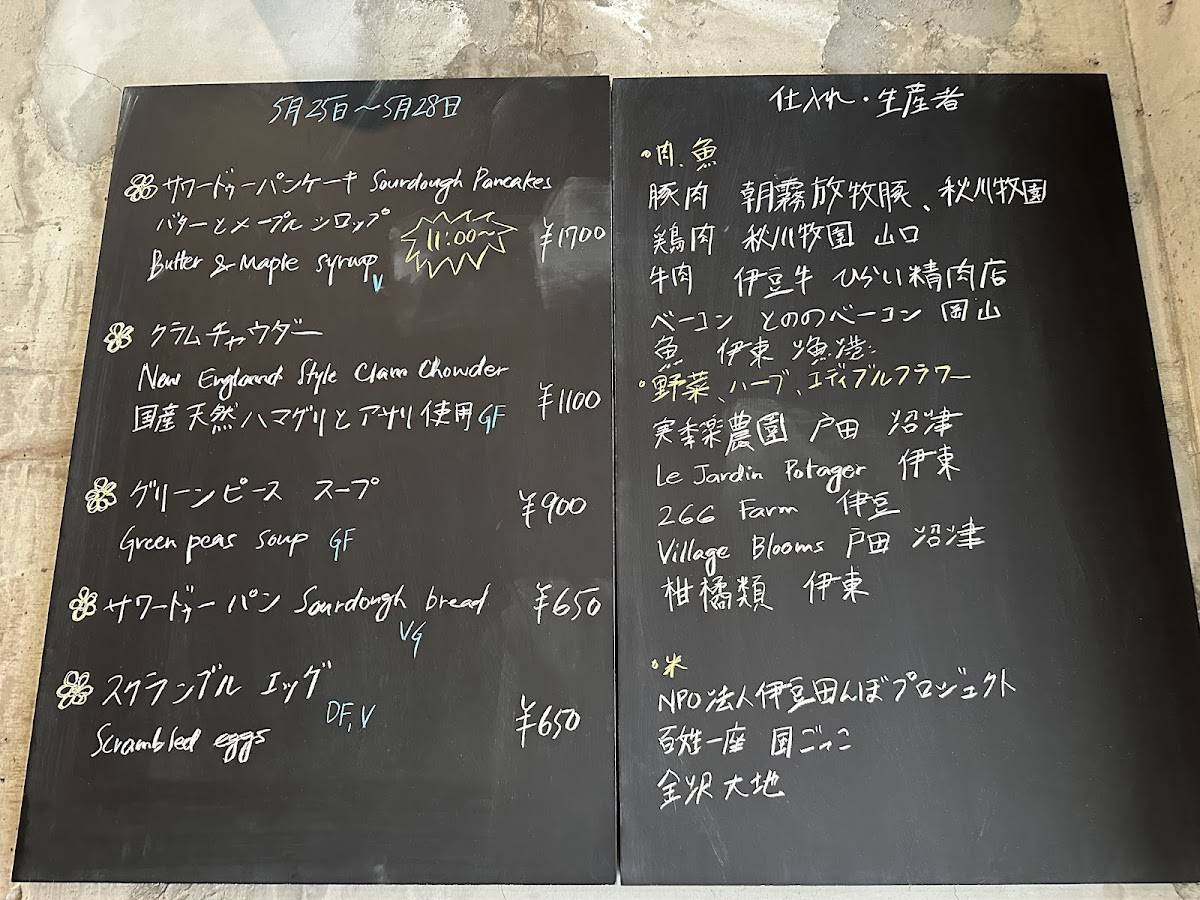 5月25日〜5月28日
サワードゥーパンケーキ Sourdough Pancakes
バターとメープルシロップ
11:00〜
¥1700
Butter & Maple syruap V
クラムチャウダー
New England Style Clam Chowder
国産天然ハマグリとアサリ使用 GF
¥1100
グリーンピース スープ
¥900
Green peas soup GF
サワードゥーパン Sourdough bread ¥650
VG
スクランブル エッグ
DF, V
¥650
Scrambled eggs
仕入れ・生産者
・肉、魚
豚肉 朝霧放牧豚、秋川牧園
鶏肉 秋川牧園 山口
牛肉 伊豆牛 ひらい精肉店
ベーコン とののベーコン 岡山
魚 伊東 漁港
・野菜、ハーブ、エディブルフラワー
実季楽農園 戸田 沼津
Le Jardin Potager 伊東
266 Farm 伊豆
Village Blooms 戸田 沼津
柑橘類 伊東
・米
NPO法人伊豆田んぼプロジェクト
百姓一座 国ごっこ
金沢大地